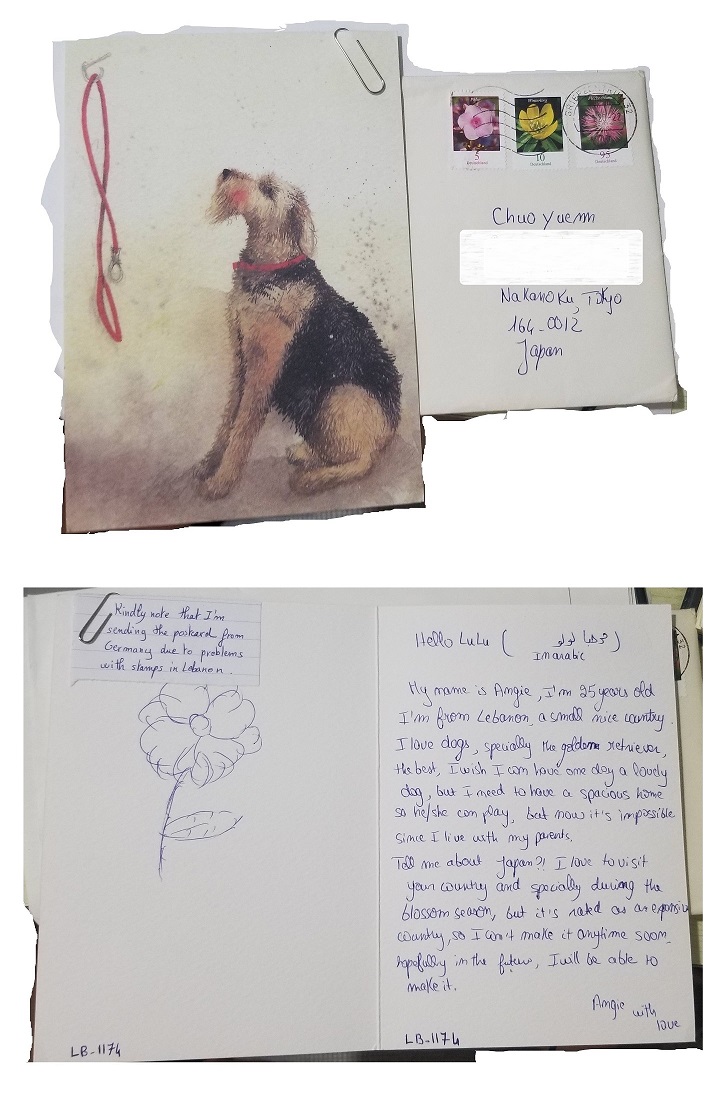 5
Deutschland
10
Deutschland
95
Deutschland
52
Chuo Yuenn
Nakanoku, Tokyo
164-0012
Japan
Kindly note that I'm
sending the postcard from
Germany due to problems
with stamps in Lebanon.
Hello LuLu ( مرحبا لولو )
In arabic
My name is Angie, I'm 25 years old
I'm from Lebanon, a small nice country.
I love dogs, specially the golden retriever,
the best, I wish I can have one day a lovely
dog, but I need to have a spacious home
so he/she can play, but now it's impossible
since I live with my parents.
Tell me about Japan?! I love to visit
your country and specially during the
blossom season, but it's rated as an expensive
country, so I can't make it anytime soon,
hopefully in the future, I will be able to
make it.
Angie with
love
LB-1174
LB-1174